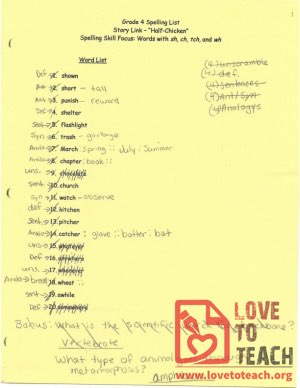 Grade 4 Spelling List
Story Link - "Half-Chicken"
Spelling Skill Focus: Words with sh, ch, tch, and wh
Word List
(4) unscramble
(4) def.
(4) sentences
(4) Ant/Syn
(4) Analogys
Def 1. shown
Ant 2. short - tall
Ant 3. punish - reward
Def 4. shelter
Sent 5. flashlight
Syn 6. trash - garbage
Analo 7. March : spring :: July : Summer
Analo 8. chapter : book ::
uns. 9. chocolate
sent. 10. church
syn 11. watch - observe
def. 12. kitchen
Sent. 13. pitcher
Analo 14. catcher : glove :: batter : bat
uns 15.
Def 16.
uns. 17.
Analo bread 18. wheat ::
sent 19. awhile
Def 20.
Bonus: What is the scientific
Vertebrate
What type of animal
metamorphosis?
LOVE
TO
TEACH
.org